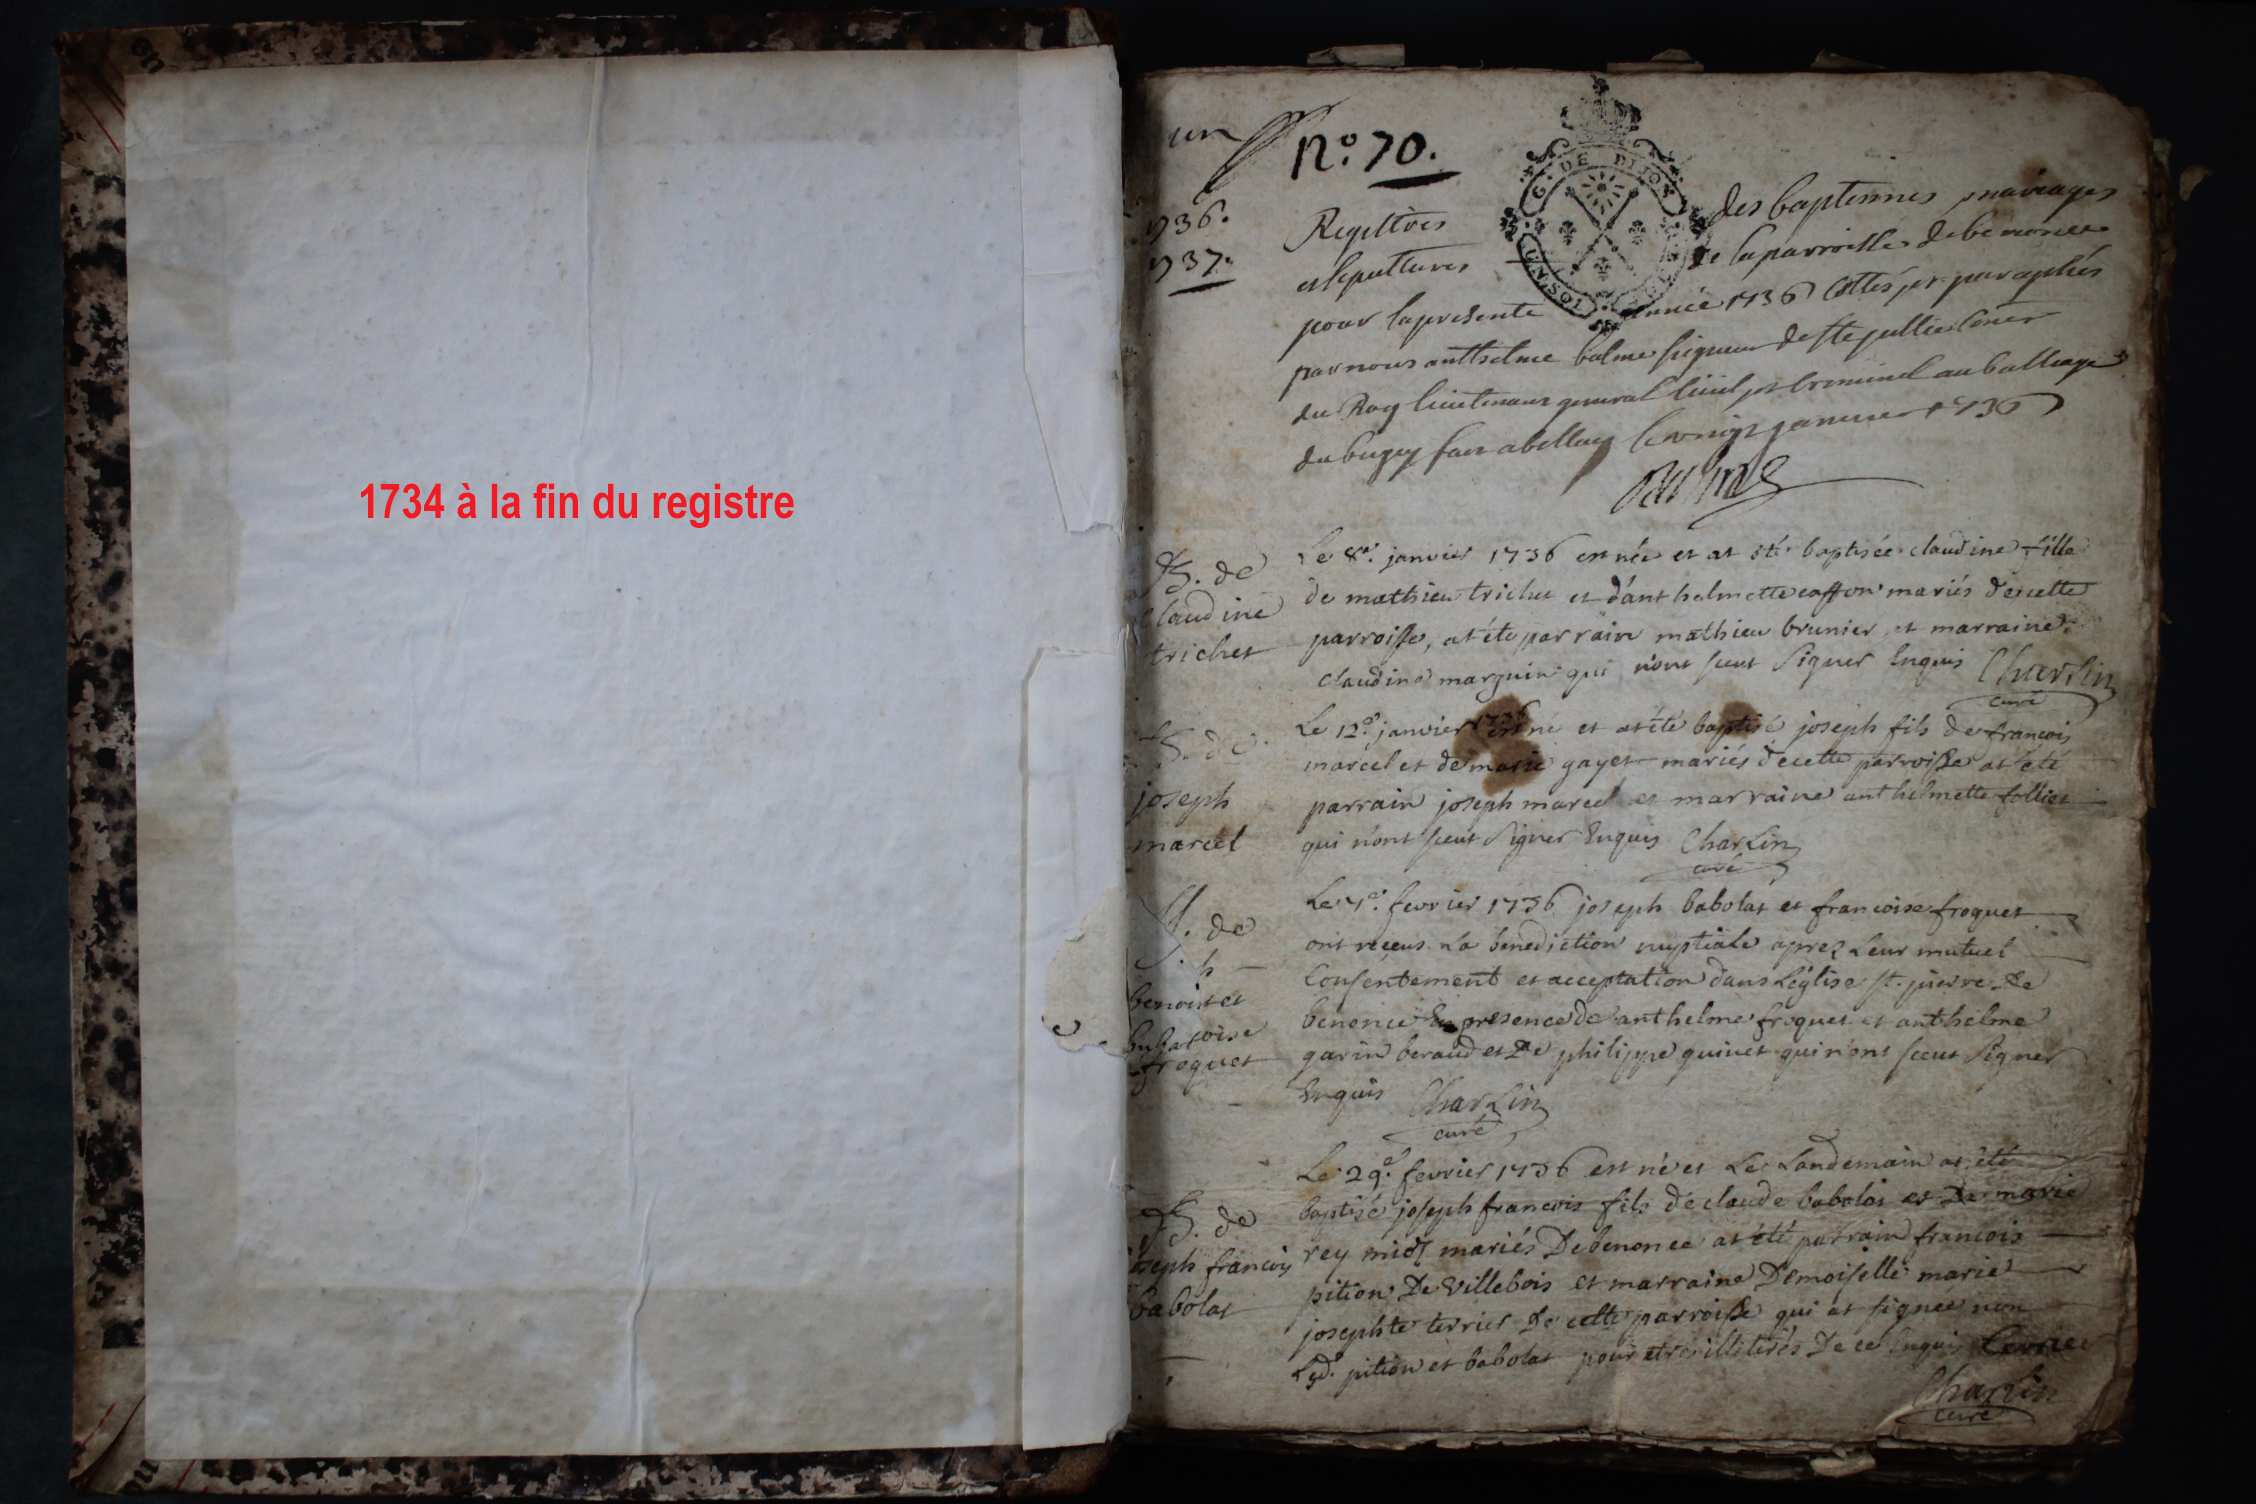 1734 à la fin du registre
un
No. 70.
1736.
1737.
G. DE DIJON
UN SOL
Registres des baptesmes mariages
et sepultures de la parroisse de benonce
pour la presente année 1736 cottés et paraphés
par nous anthelme balme seigneur de ste jullie Coner
du Roy lieutenant general Civil et Criminel au balliage
du bugey fait a belley le janvier 1736
Balme
B. de
claudine
trichet
Le 8e. janvier 1736 est née et at été baptisée claudine fille
de mathieu trichet et d'anthelmette caffon mariés d'cette
parroisse, at été parrain mathieu brunier et marraine
claudine marguin qui n'ont sceut signer Enquis Charlin
curé
B. de
joseph
marcel
Le 12e. janvier 1736 est né et at été baptisé joseph fils de francois
marcel et de marie gayet mariés de cette parroisse at été
parrain joseph marcel et marraine anthelmette follies
qui n'ont sceut signer Enquis Charlin
curé
de
h
benoist et
froquet
Le 7e. fevrier 1736 joseph babolat et francoise froquet
ont reçeus la benediction nuptiale aprez Leur mutuel
Consentement et acceptation dans L'eglise st. pierre de
benonce En presence de anthelme froquet et anthelme
garin beraud et De philippe guinet qui n'ont sceut signer
Enquis Charlin
curé
B. de
joseph francois
babolat
Le 29e. fevrier 1736 est né et Le Landemain at été
baptisé joseph francois fils de claude babolat et De marie
rey mariés De benonce at été parrain francois
pition De Villebois et marraine Demoiselle marie
josephte terrier De cette parroisse qui at signée non
Led. pition et babolat pour etre illiterés De ce Enquis terrier
Charlin
curé